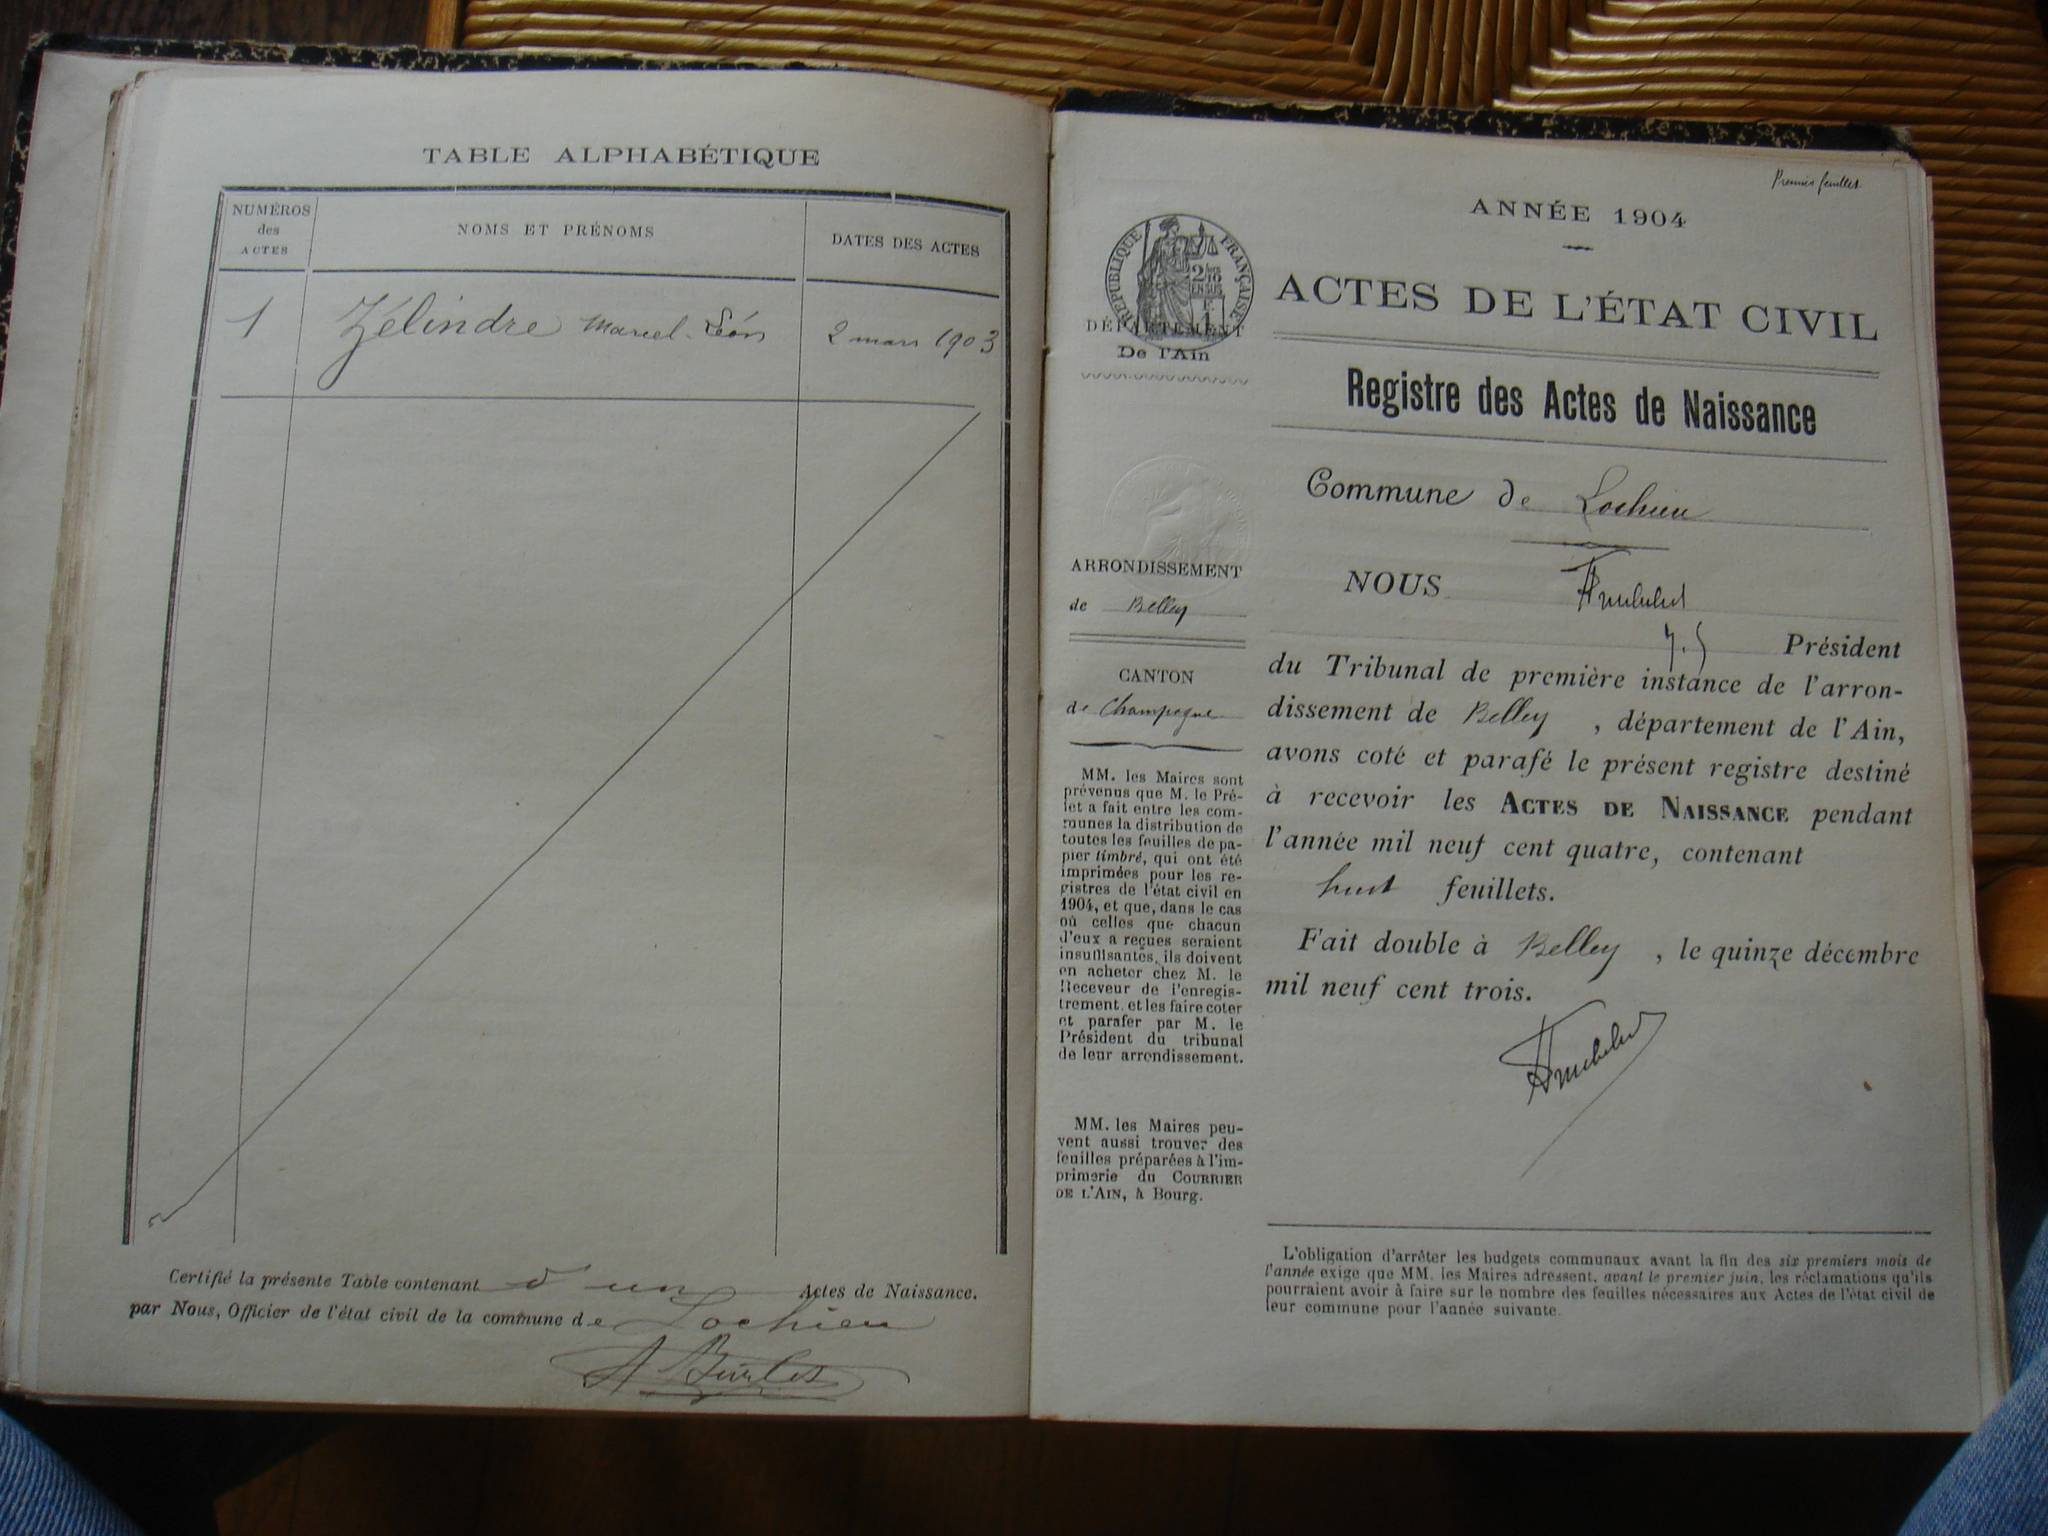 TABLE ALPHABÉTIQUE
NUMÉROS
des
ACTES
NOMS ET PRÉNOMS
DATES DES ACTES
1
Zélindre Marcel-Léon
2 mars 1903
Certifié la présente Table contenant d'un Actes de Naissance.
par Nous, Officier de l'état civil de la commune de Lochieu
Premier feuillet
ANNÉE 1904
RÉPUBLIQUE FRANÇAISE
DÉPARTEMENT
De l'Ain
ACTES DE L'ÉTAT CIVIL
Registre des Actes de Naissance
Commune de Lochieu
ARRONDISSEMENT
de Belley
CANTON
de Champagne
MM. les Maires sont
prévenus que M. le Pré-
fet a fait entre les com-
munes la distribution de
toutes les feuilles de pa-
pier timbré, qui ont été
imprimées pour les re-
gistres de l'état civil en
1904, et que, dans le cas
où celles que chacun
d'eux a reçues seraient
insuffisantes, ils doivent
en acheter chez M. le
Receveur de l'enregis-
trement, et les faire coter
et parafer par M. le
Président du tribunal
de leur arrondissement.
MM. les Maires peu-
vent aussi trouver des
feuilles préparées à l'im-
primerie du COURRIER
DE L'AIN, à Bourg.
NOUS
Président
du Tribunal de première instance de l'arron-
dissement de Belley, département de l'Ain,
avons coté et parafé le présent registre destiné
à recevoir les ACTES DE NAISSANCE pendant
l'année mil neuf cent quatre, contenant
huit feuillets.
Fait double à Belley, le quinze décembre
mil neuf cent trois.
L'obligation d'arrêter les budgets communaux avant la fin des six premiers mois de
l'année exige que MM. les Maires adressent, avant le premier juin, les réclamations qu'ils
pourraient avoir à faire sur le nombre des feuilles nécessaires aux Actes de l'état civil de
leur commune pour l'année suivante.